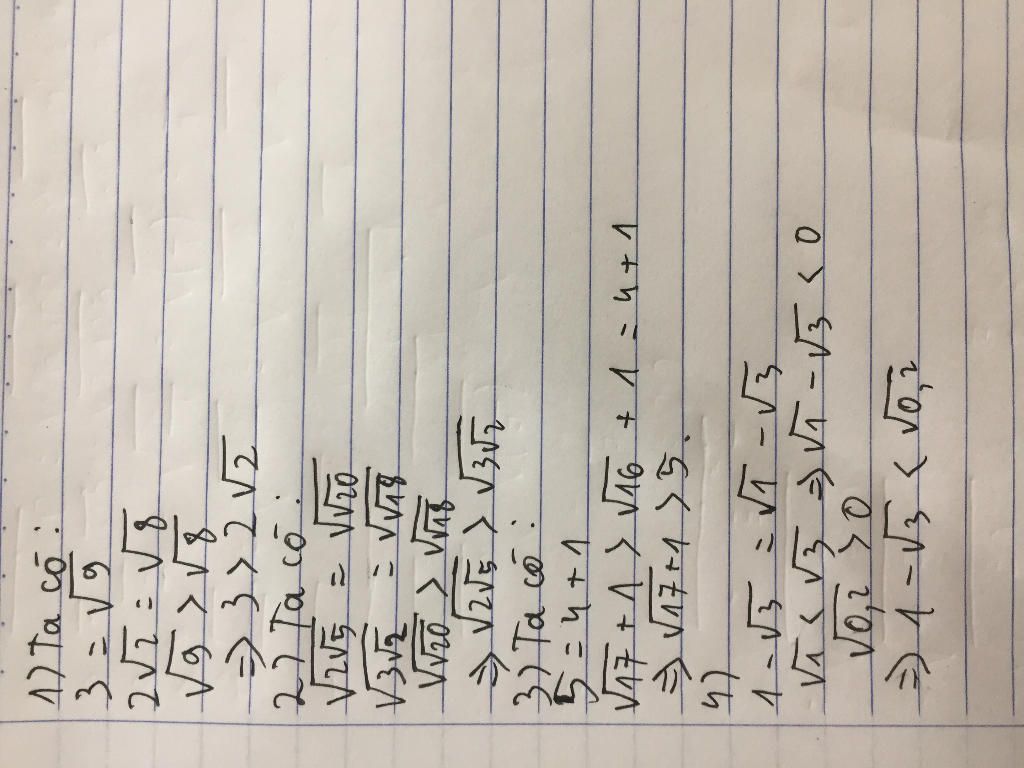 1) Ta có:
3 = √9
2√2 = √8
√9 > √8
⇒ 3 > 2√2
2) Ta có:
√(2√5) = √(√20)
√(3√2) = √(√18)
√(√20) > √(√18)
⇒ √(2√5) > √(3√2)
3) Ta có:
5 = 4 + 1
√17 + 1 > √16 + 1 = 4 + 1
⇒ √17 + 1 > 5.
4)
1 - √3 = √1 - √3
√1 < √3 ⇒ √1 - √3 < 0
√0,2 > 0
⇒ 1 - √3 < √0,2